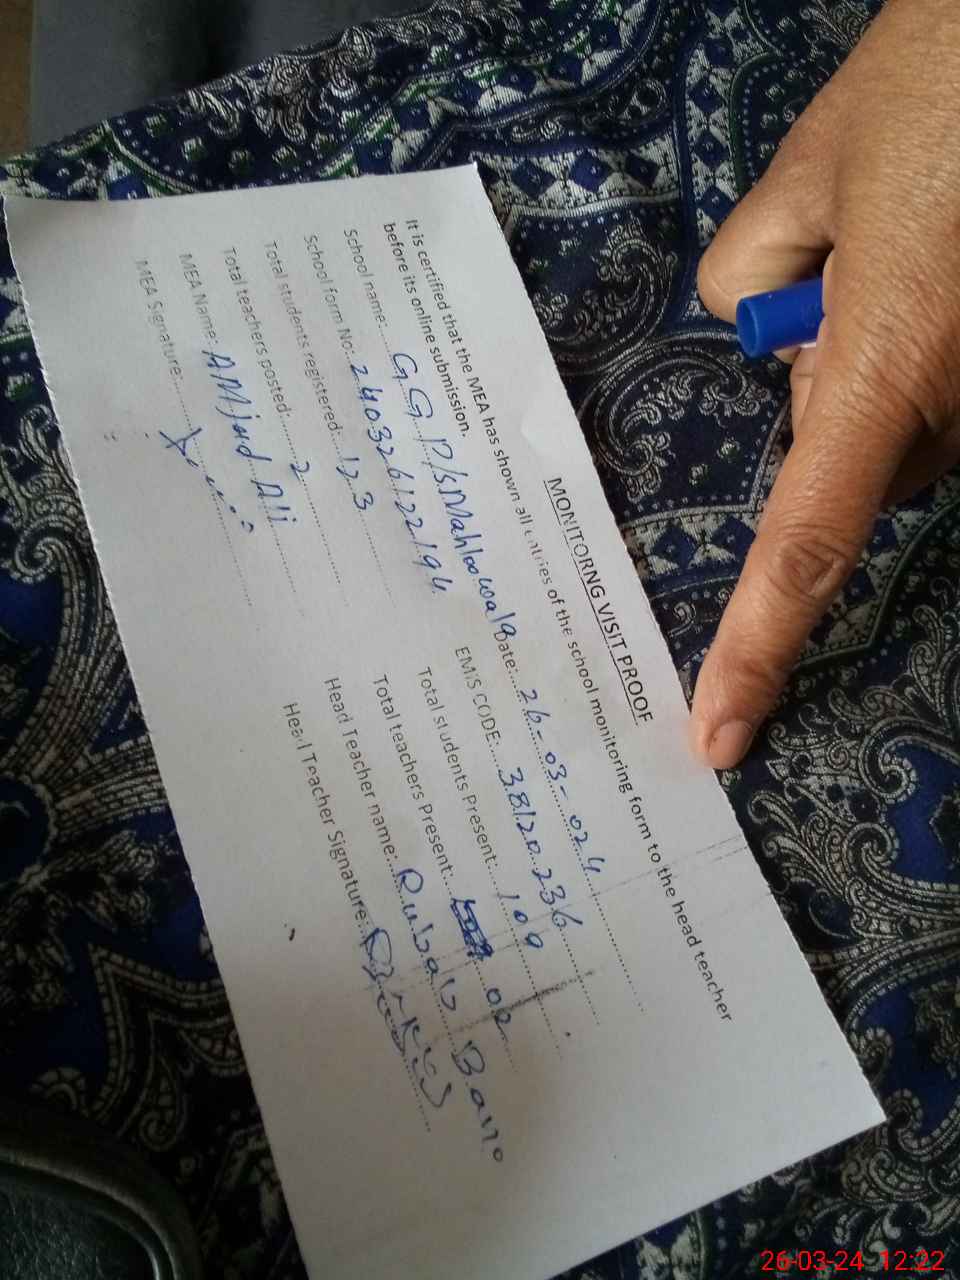 MONITORNG VISIT PROOF
It is certified that the MEA has shown all entries of the school monitoring form to the head teacher
before its online submission.
School name:....GGP/s Mahloowala Date:....26-03-024
School form No:..240326122194 EMIS CODE:...38120236
Total students registered:...123 Total students Present:....109
Total teachers posted:....2 Total teachers Present:....02
MEA Name:..AMjad Ali Head Teacher name:..Rubab Bano
MEA Signature:.... Head Teacher Signature:
26-03-24 12:22